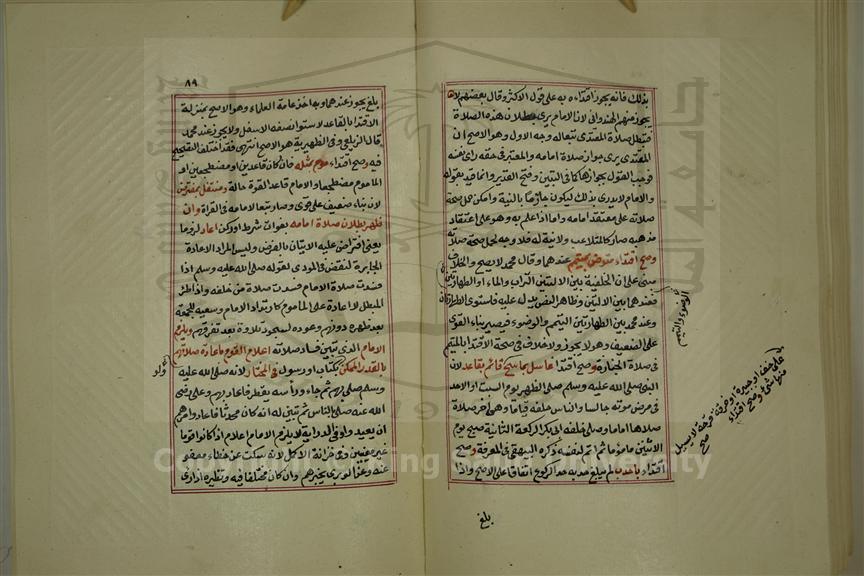 بذلك فانه يجوز اقتداءه به على قول الاكثر وقال بعضهم لا
يجوز منهم الهندواني لان الامام يرى بطلان هذه الصلاة
فتبطل صلاة المقتدى تبعا له وجه الاول وهو الاصح ان
المقتدى يرى جواز صلاة امامه والمعتبر في حقه راى نفسه
فوجب القول بجوازها كما في التبيين وفتح القدير وانما قيد بقوله
والامام لا يدرى بذلك ليكون جازما بالنية وامكن حمل صحة
صلاته على معتقد امامه واما اذا علم به وهو على اعتقاد
مذهبه صار كالمتلاعب ولا نية له فلا وجه لحمل صحة صلاته
وصح اقتداء متوضئ بمتيمم عندهما وقال محمد لا يصح والخلاف
مبنى على ان الخلفية بين الالتين التراب والماء او الطهارتين
فعندهما بين الالتين وظاهر النص يدل عليه فاستوى الطهارتان
وعند محمد بين الطهارتين التيمم والوضوء فيصير بناء القوى
على الضعيف وهو لا يجوز ولا خلاف في صحة الاقتداء بالمتيمم
في صلاة الجنازة وصح اقتداء غاسل بماسح وقائم بقاعد لان
النبى صلى الله عليه وسلم صلى الظهر يوم السبت او الاحد
في مرض موته جالسا والناس خلفه قياما وهى اخر صلاة
صلاها اماما وصلى خلف ابى بكر الركعة الثانية صبح يوم
الاثنين ماموما ثم اتم لنفسه ذكره البيهقى في المعرفة وصح
اقتداء باحدب لم يبلغ حدبه حد الركوع اتفاقا على الاصح واذا
بلغ
الوضوء والتيمم
على خف او جبيرة او خرقة قرحة لا يسيل
منها شئ وصح اقتداء
صح
٨٩
بلغ يجوز عندهما وبه اخذ عامة العلماء وهو الاصح بمنزلة
الاقتدا بالقاعد لاستواء نصفه الاسفل ولا يجوز عند محمد
قال الزيلعى وفى الظهيرية هو الاصح انتهى فقد اختلف التصحيح
فيه وصح اقتداء موم بمثله فان كان قاعدين او مضطجعين او
الماموم مضطجعا والامام قاعدا لقوة حاله ومتنفل بمفترض
لان بناء ضعيف على قوى وصار تبعا لامامه في القراة وان
ظهر بطلان صلاة امامه بفوات شرط او ركن اعاد لزوما
يعنى افتراض عليه الاتيان بالفرض وليس المراد الاعادة
الجابرة لنقص في المودى لقوله صلى الله عليه وسلم اذا
فسدت صلاة الامام فسدت صلاة من خلفه واذا طرا
المبطل لا اعادة على الماموم كارتداد الامام وسعيه للجمعة
بعد ظهره دونهم وعوده لسجود تلاوة بعد تفرقهم ويلزم
الامام الذى تبين فساد صلاته اعلام القوم باعادة صلاتهم
بالقدر الممكن بكتاب او رسول في المختار لانه صلى الله عليه
وسلم صلى بهم ثم جاء وراسه يقطر فاعاد بهم وعلى رضى
الله عنه صلى بالناس ثم تبين له انه كان محدثا فاعاد وامرهم
ان يعيدوا وفى الدراية لا يلزم الامام اعلام اذا كانوا قوما
غير معينين وفى خزانة الاكمل لانه سكت عن خطاء معفو
عنه وعن الوبرى يخبرهم وان كان مختلفا فيه ونظيره اذا راى
ولو